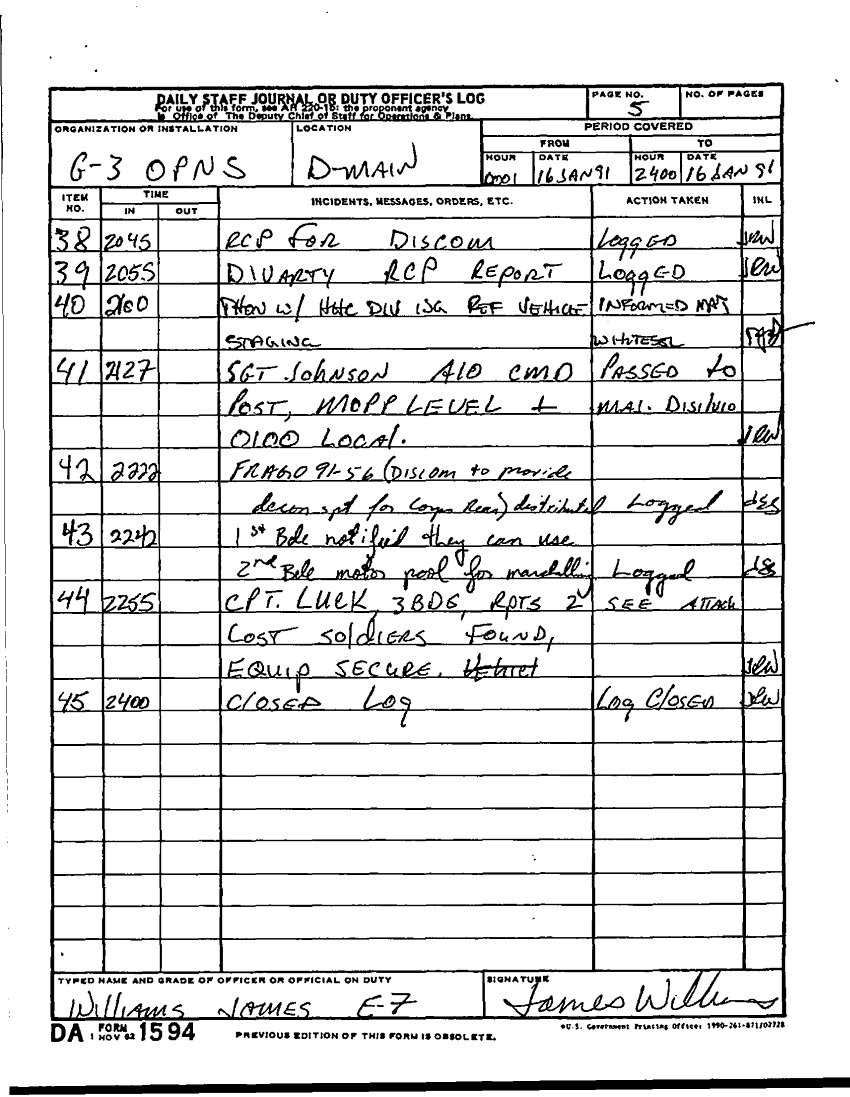 DAILY STAFF JOURNAL OR DUTY OFFICER'S LOG
For use of this form, see AR 220-15; the proponent agency
is Office of The Deputy Chief of Staff for Operations & Plans.
PAGE NO.
5
NO. OF PAGES
ORGANIZATION OR INSTALLATION
G-3 OPNS
LOCATION
D-MAIN
PERIOD COVERED
FROM TO
HOUR DATE HOUR DATE
0001 16 JAN 91 2400 16 JAN 91
ITEM NO. TIME INCIDENTS, MESSAGES, ORDERS, ETC. ACTION TAKEN INL
IN OUT
38 2045 RCP FOR DISCOM LOGGED JRW
39 2055 DIVARTY RCP REPORT LOGGED JRW
40 2100 W/ HHC DIV REF VEHICLE INFORMED
STAGING
41 2127 SGT JOHNSON CMD PASSED to
POST, MOPP LEVEL MAJ.
0100 LOCAL. JRW
42 2222 FRAGO 91-56 (DISCOM to provide
decon spt for Corps Rear) distributed Logged dss
43 2242 1st Bde notified they can use
2nd Bde motor pool for marshalling Logged dss
44 2255 CPT. LUCK, 3BDG, RPTS 2 SEE ATTACH
LOST SOLDIERS FOUND,
EQUIP SECURE. JRW
45 2400 CLOSED LOG LOG CLOSED JRW
TYPED NAME AND GRADE OF OFFICER OR OFFICIAL ON DUTY
WILLIAMS JAMES E-7
SIGNATURE
James Williams
DA FORM 1 NOV 62 1594
PREVIOUS EDITION OF THIS FORM IS OBSOLETE.
*U.S. Government Printing Office: 1990-261-871/02728